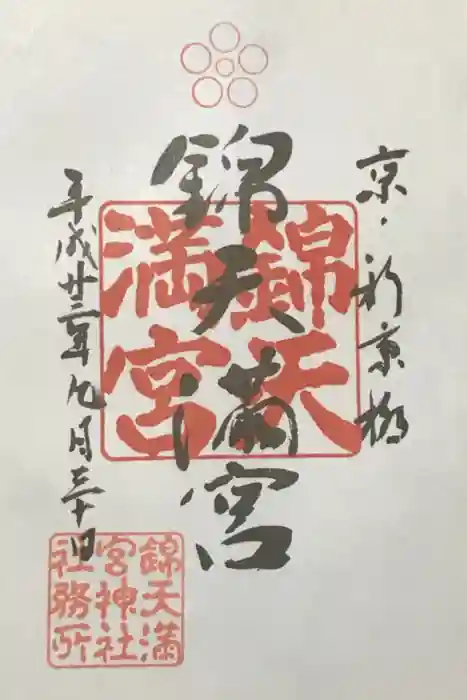 京・新京極
錦天満宮
錦天
満宮
平成廿三年九月三十日
錦天満
宮神社
社務所